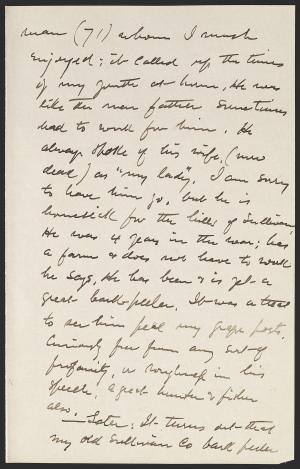 man (71) whom I much
enjoyed; it called up the times
of my youth at home. He was
like the men father sometimes
had to work for him. He
always spoke of his wife, (now
dead) as "my lady". I am sorry
to have him go, but he is
homesick for the hills of Sullivan.
He was 4 years in the war; has
a farm & does not have to work
he says. He has been & is yet a
great bark-peeler. It was a treat
to see him peal my grape posts.
Curiously free from any sort of
profanity, or roughness in his
speech; a great hunter & fisher
also. Later: It turns out that
my old Sullivan Co bark peeler